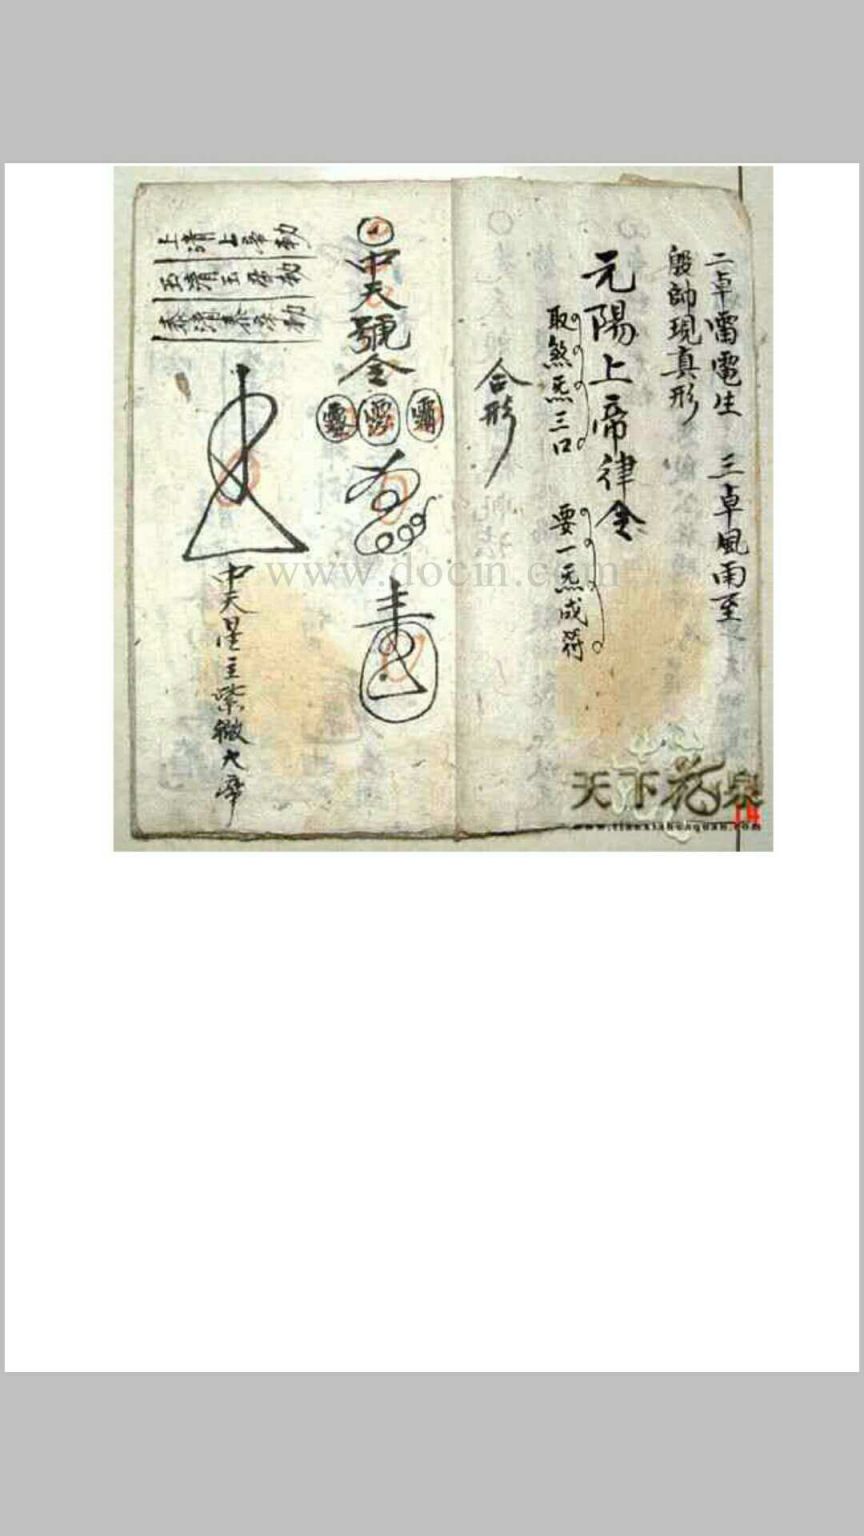 二卓雷電生 三卓風雨至
殷帥現真形
元陽上帝律令
取煞炁三口 要一炁成符
合形
中天號令
上清上帝勅
玉清玉帝勅
泰清泰帝勅
中天星主紫微大帝
www.docin.com
天下花泉